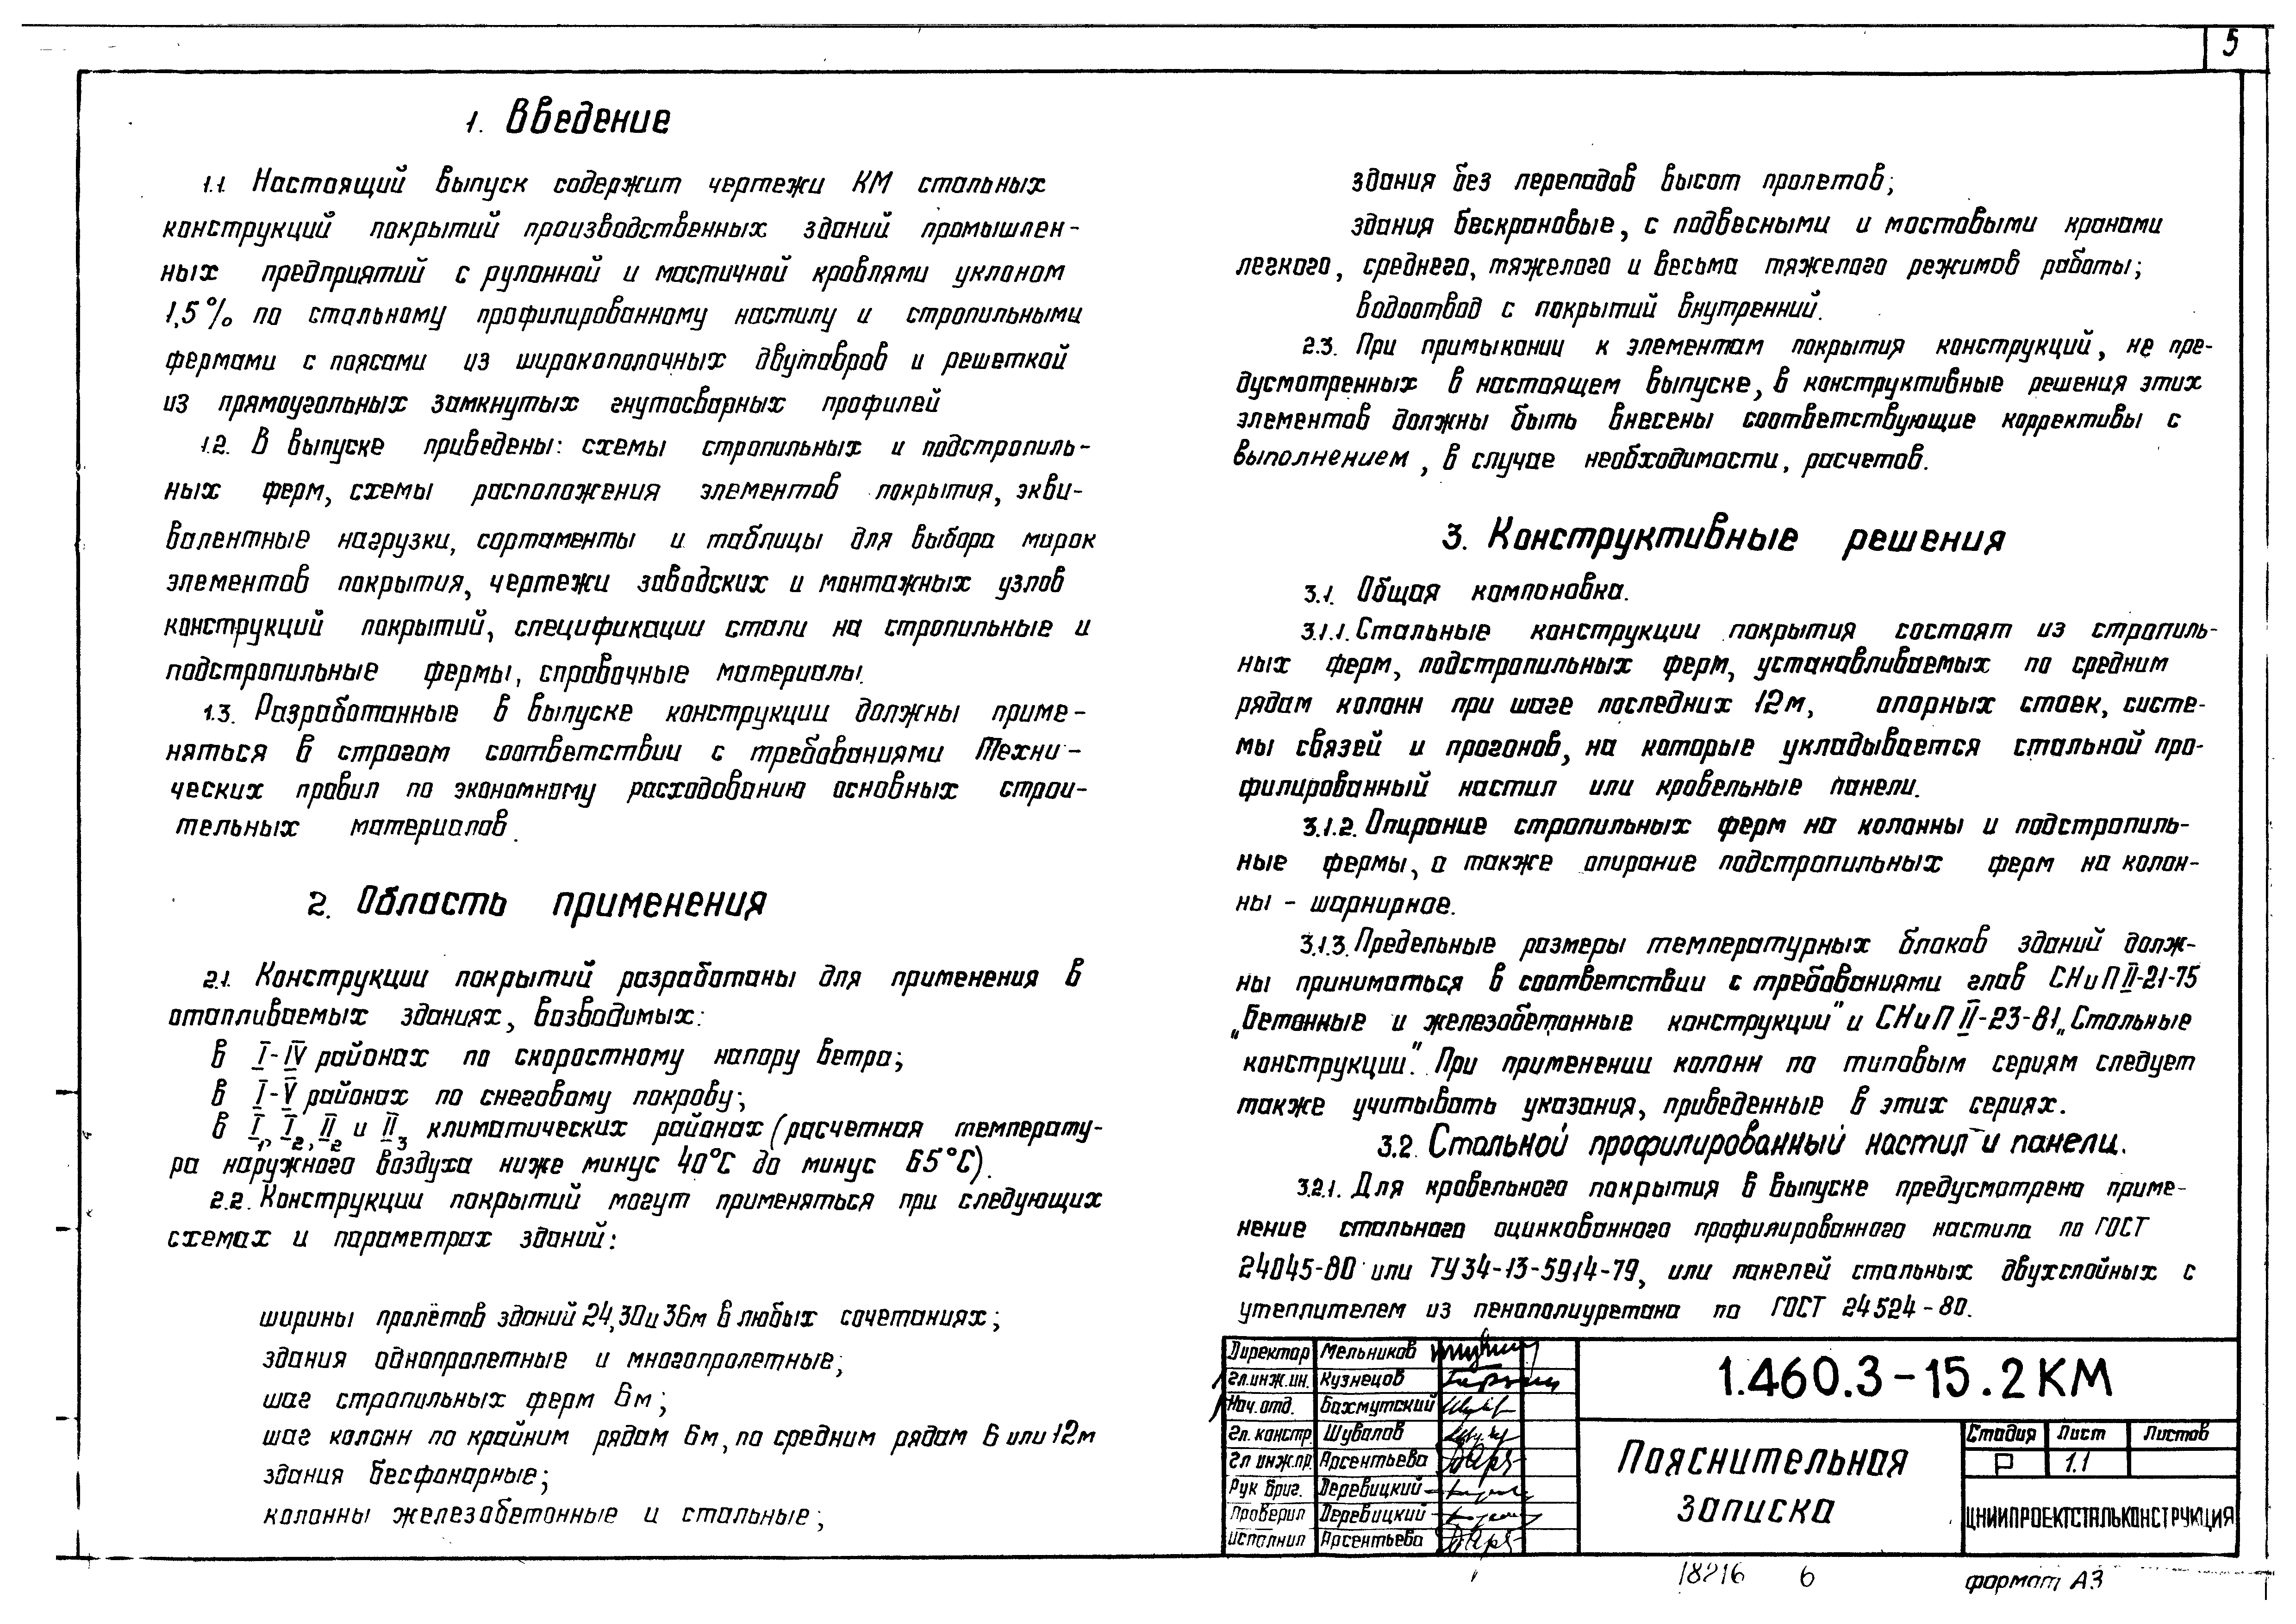 5
1. Введение
1.1. Настоящий выпуск содержит чертежи КМ стальных
конструкций покрытий производственных зданий промышлен-
ных предприятий с рулонной и мастичной кровлями уклоном
1,5% по стальному профилированному настилу и стропильными
фермами с поясами из широкополочных двутавров и решеткой
из прямоугольных замкнутых гнутосварных профилей
1.2. В выпуске приведены: схемы стропильных и подстропиль-
ных ферм, схемы расположения элементов покрытия, экви-
валентные нагрузки, сортаменты и таблицы для выбора марок
элементов покрытия, чертежи заводских и монтажных узлов
конструкций покрытий, спецификации стали на стропильные и
подстропильные фермы, справочные материалы.
1.3. Разработанные в выпуске конструкции должны приме-
няться в строгом соответствии с требованиями Техни-
ческих правил по экономному расходованию основных строи-
тельных материалов.
2. Область применения
2.1. Конструкции покрытий разработаны для применения в
отапливаемых зданиях, возводимых:
в I-IV районах по скоростному напору ветра;
в I-V районах по снеговому покрову;
в I₁, I₂, II₂ и II₃ климатических районах (расчетная температу-
ра наружного воздуха ниже минус 40°С до минус 65°С).
2.2. Конструкции покрытий могут применяться при следующих
схемах и параметрах зданий:
ширины пролётов зданий 24, 30 и 36м в любых сочетаниях;
здания однопролетные и многопролетные;
шаг стропильных ферм 6м;
шаг колонн по крайним рядам 6м, по средним рядам 6 или 12м
здания бесфонарные;
колонны железобетонные и стальные;
здания без перепадов высот пролетов;
здания бескрановые, с подвесными и мостовыми кранами
легкого, среднего, тяжелого и весьма тяжелого режимов работы;
водоотвод с покрытий внутренний.
2.3. При примыкании к элементам покрытия конструкций, не пре-
дусмотренных в настоящем выпуске, в конструктивные решения этих
элементов должны быть внесены соответствующие коррективы с
выполнением, в случае необходимости, расчетов.
3. Конструктивные решения
3.1. Общая компоновка.
3.1.1. Стальные конструкции покрытия состоят из стропиль-
ных ферм, подстропильных ферм, устанавливаемых по средним
рядам колонн при шаге последних 12м, опорных стоек, систе-
мы связей и прогонов, на которые укладывается стальной про-
филированный настил или кровельные панели.
3.1.2. Опирание стропильных ферм на колонны и подстропиль-
ные фермы, а также опирание подстропильных ферм на колон-
ны - шарнирное.
3.1.3. Предельные размеры температурных блоков зданий долж-
ны приниматься в соответствии с требованиями глав СНиП II-21-75
„Бетонные и железобетонные конструкции" и СНиП II-23-81 „Стальные
конструкции". При применении колонн по типовым сериям следует
также учитывать указания, приведенные в этих сериях.
3.2. Стальной профилированный настил и панели.
3.2.1. Для кровельного покрытия в выпуске предусмотрено приме-
нение стального оцинкованного профилированного настила по ГОСТ
24045-80 или ТУ34-13-5914-79, или панелей стальных двухслойных с
утеплителем из пенополиуретана по ГОСТ 24524-80.
Директор Мельников
Гл.инж.ин. Кузнецов
Нач.отд. Бахмутский
Гл. констр. Шувалов
Гл инж.пр. Арсентьева
Рук бриг. Деревицкий
Проверил Деревицкий
Исполнил Арсентьева
1.460.3-15.2КМ
Пояснительная
записка
Стадия Лист Листов
Р 1.1
ЦНИИПРОЕКТСТАЛЬКОНСТРУКЦИЯ
18216 6
формат А3